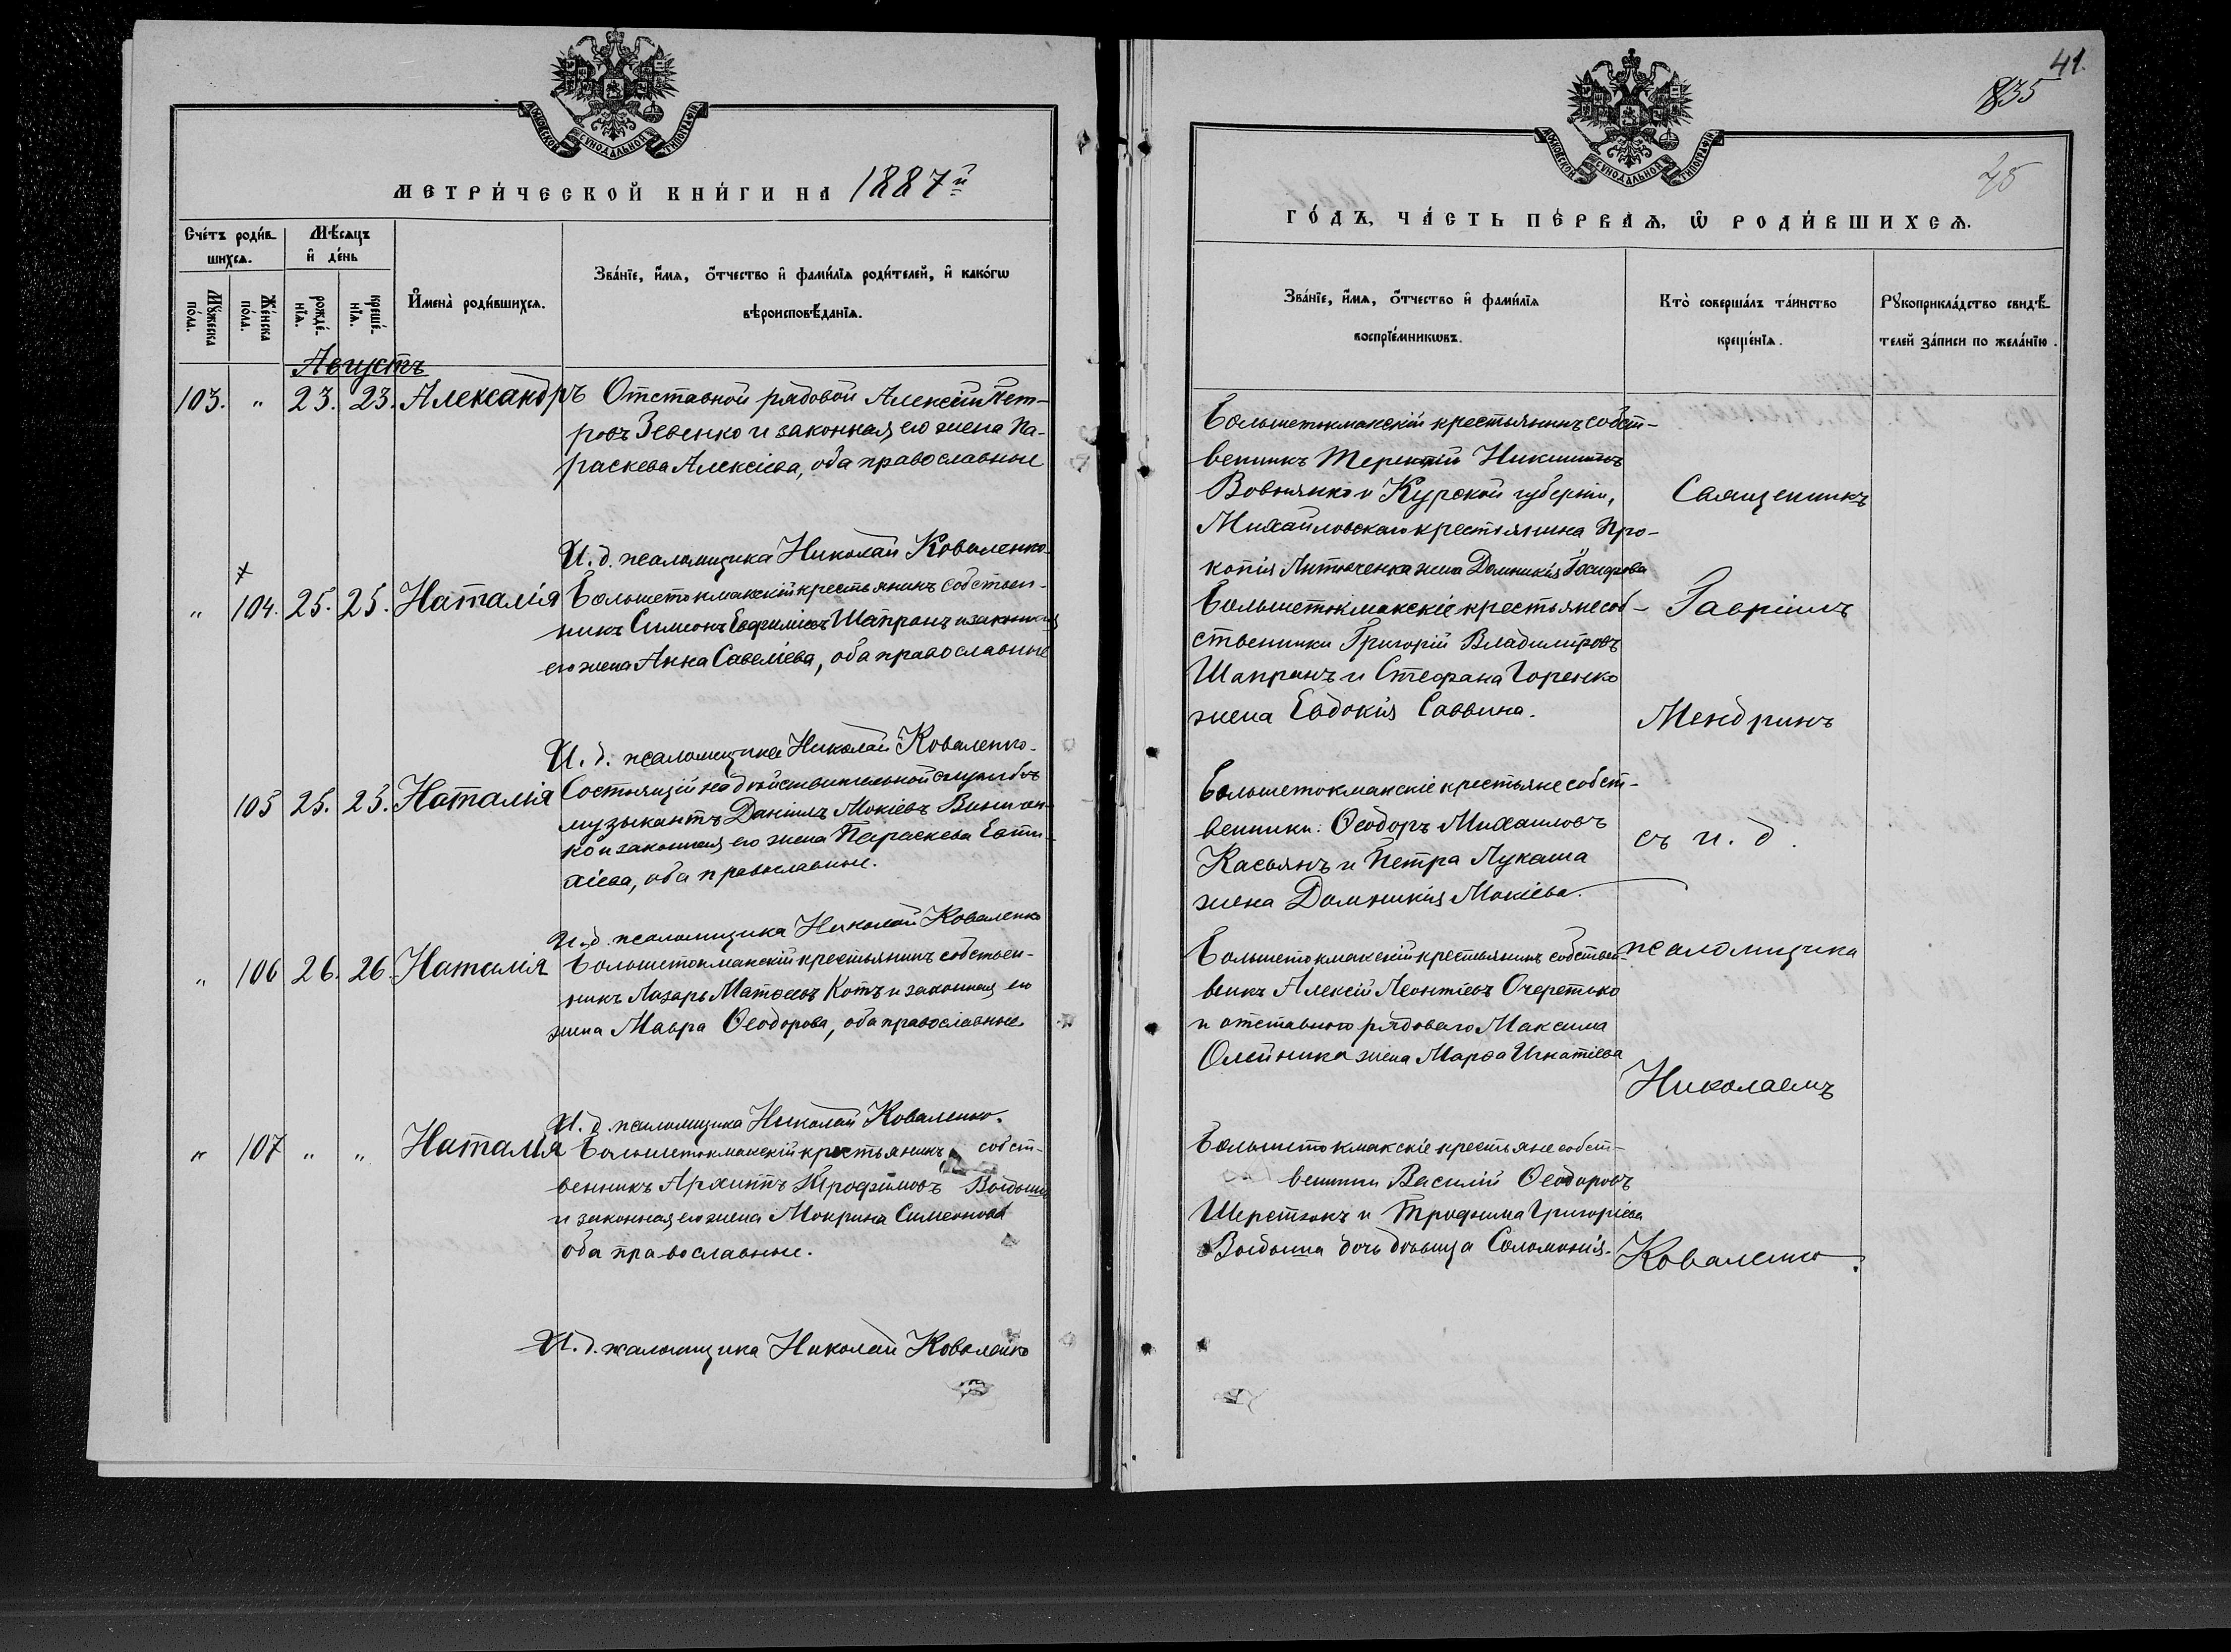 МОСКОВСКОЙ СУНОДАЛЬНОЙ ТИПОГРАФІИ
МЕТРИ́ЧЕСКОЙ КНИ́ГИ НА 1887й
Сче́тъ роди́в-
шихся.
Мѣсяцъ
и҆ де́нь
Мꙋ́жеска
по́ла.
Же́нска
по́ла.
рожде́-
нїя.
креще́-
нїя.
И҆мена̀ роди́вшихся.
Зва́нїе, и҆́мя, ѻ҆́тчество и҆ фами́лїя роди́телей, и҆ како́гѡ
вѣроисповѣ́данїя.
Августъ
103. " 23. 23. Александръ Отставной рядовой Алексій Пет-
ровъ Зевенко и законная его жена Па-
раскева Алексіева, оба православные
И. д. псаломщика Николай Коваленко
" 104. 25. 25. Наталія Большетокмакскій крестьянинъ собствен-
никъ Симеонъ Евфиміевъ Шапранъ и законная
его жена Анна Савеліева, оба православные
И. д. псаломщика Николай Коваленко.
105 25. 25. Наталія Состоящій на дѣйствительной службѣ
музыкантъ Даніилъ Мокіевъ Виничен-
ко и законная его жена Параскева Евти-
хіева, оба православные.
И. д. псаломщика Николай Коваленко
" 106 26. 26. Наталія Большетокмакскій крестьянинъ собствен-
никъ Лазарь Матѳеевъ Котъ и законная его
жена Мавра Ѳеодорова, оба православные
И. д. псаломщика Николай Коваленко.
" 107 " " Наталія Большетокмакскій крестьянинъ собст-
венникъ Архиппъ Трофимовъ
и законная его жена Мокрина Симеонова
оба православные.
И. д. псаломщика Николай Коваленко
41.
835
МОСКОВСКОЙ СУНОДАЛЬНОЙ ТИПОГРАФІИ
ГО́ДЪ, ЧА́СТЬ ПЕ́РВАЯ, Ѡ҆ РОДИ́ВШИХСЯ.
Зва́нїе, и҆́мя, ѻ҆́тчество и҆ фами́лїя
воспрїе́мникѡвъ.
Кто̀ соверша́лъ та́инство
креще́нїя.
Рꙋкоприкла́дство свидѣ́-
телей за́писи по жела́нїю.
Большетокмакскій крестьянинъ собст-
венникъ Терентій Никитинъ
Вовнянко и Курской губерніи,
Михайловскаго крестьянина Про-
копія Антюченка жена Домникія Іосифова
Большетокмакскіе крестьяне соб-
ственники Григорій Владиміровъ
Шапранъ и Стефана Горенко
жена Евдокія Саввина.
Большетокмакскіе крестьяне собст-
венники: Ѳеодоръ Михаиловъ
Касьянъ и Петра Лукаша
жена Домникія Мокіева.
Большетокмакскій крестьянинъ собствен-
никъ Алексій Леонтіевъ Очеретько
и отставного рядоваго Максима
Олейника жена Марѳа Игнатіева
Большетокмакскіе крестьяне собст-
венники Василій Ѳеодоровъ
Шерстюкъ и Трофима Григоріева
дочь дѣвица Соломонія.
Священникъ
Гавріилъ
Мендринъ
съ и. д.
псаломщика
Николаемъ
Коваленко.